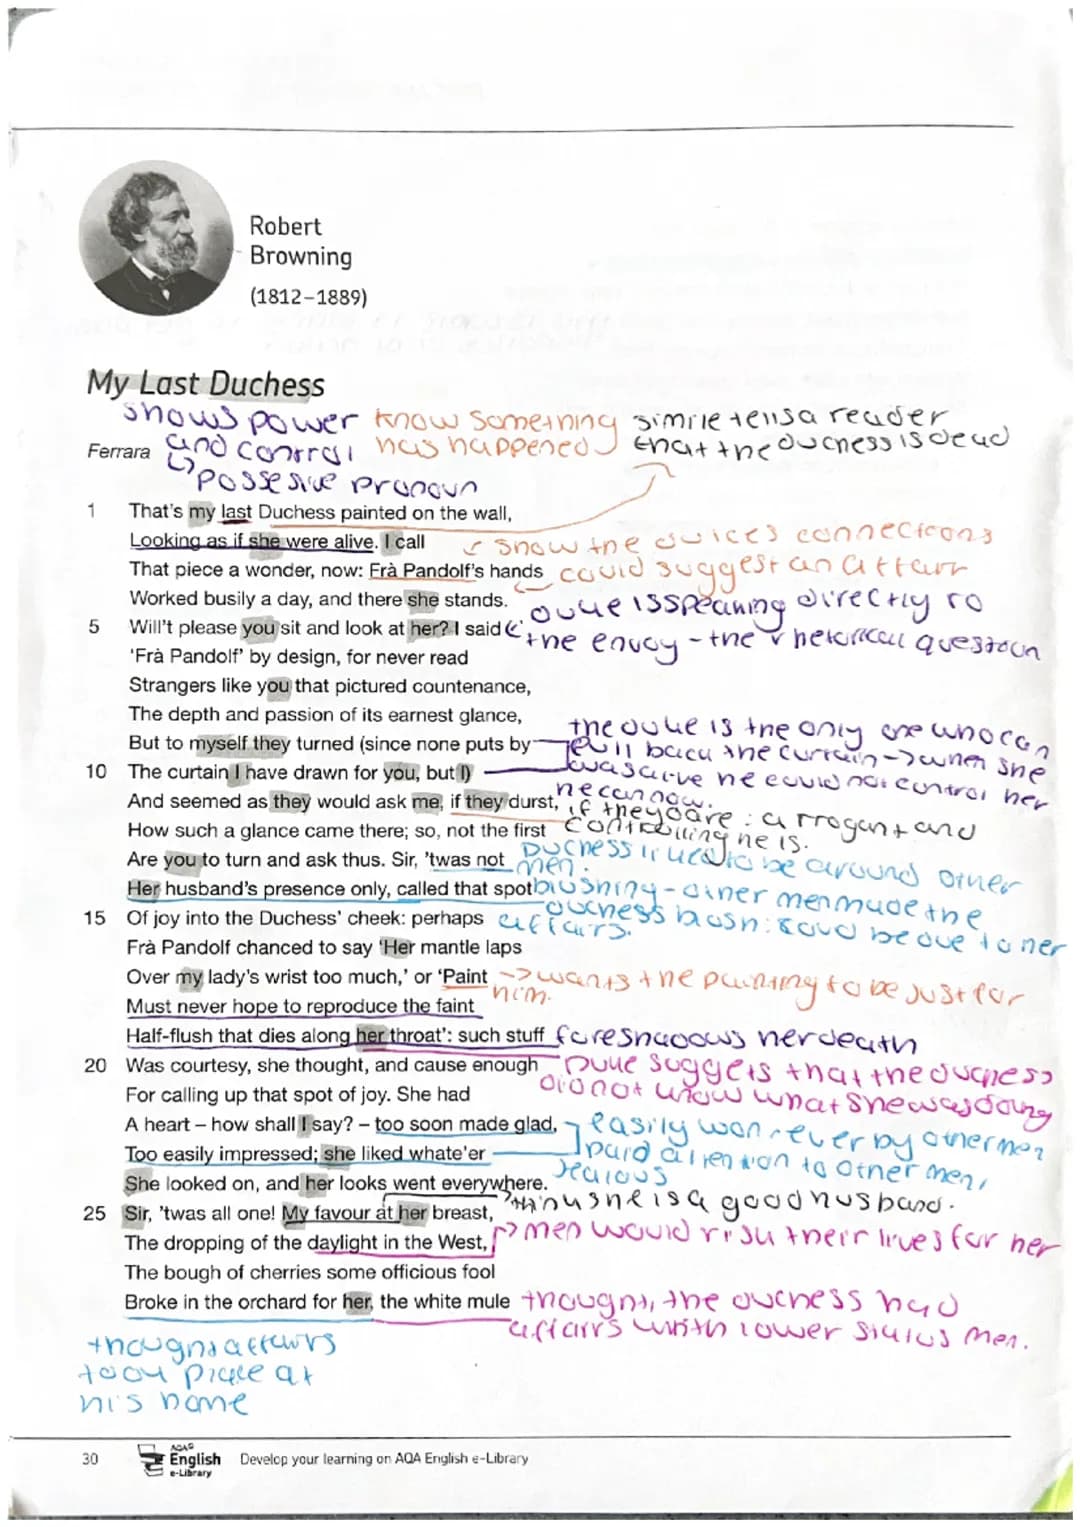 Robert
Browning
(1812–1889)
My Last Duchess
shows power
and control
↳possesive pronoun
know something
has happened
simile tells a reader
that the Duchess is dead
Ferrara
1 That's my last Duchess painted on the wall,
Looking as if she were alive. I call
show the dukes connections
That piece a wonder, now: Frà Pandolf's hands
could suggest an affair
Worked busily a day, and there she stands.
Duke is speaking directly to
5 Will't please you sit and look at her? I said
the envoy - the rhetorical question
'Frà Pandolf' by design, for never read
Strangers like you that pictured countenance,
The depth and passion of its earnest glance,
the duke is the only one who can
But to myself they turned (since none puts by
pull back the curtain -> when she
10 The curtain I have drawn for you, but I)
was alive he could not control her
he can now.
And seemed as they would ask me, if they durst,
if they dare : arrogant and
How such a glance came there; so, not the first
controlling he is.
Are you to turn and ask thus. Sir, 'twas not
Duchess used to be around other
men.
Her husband's presence only, called that spot
blushing - other men made the
15 Of joy into the Duchess' cheek: perhaps
Duchess blush: could be due to her
affairs.
Frà Pandolf chanced to say 'Her mantle laps
Over my lady's wrist too much,' or 'Paint
-> wants the painting to be just for
him.
Must never hope to reproduce the faint
Half-flush that dies along her throat': such stuff
foreshadows her death
20 Was courtesy, she thought, and cause enough
Duke suggets that the duchess
For calling up that spot of joy. She had
did not know what she was doing
A heart – how shall I say? – too soon made glad,
easily won over by other men
Too easily impressed; she liked whate'er
paid attention to other men,
jealous
She looked on, and her looks went everywhere.
thinks he is a good husband.
25 Sir, 'twas all one! My favour at her breast,
The dropping of the daylight in the West,
-> men would risk their lives for her
The bough of cherries some officious fool
Broke in the orchard for her, the white mule
thought, the duchess had
affairs with lower status men.
thought affairs
took place at
his home
30
AQA
English
e-Library
Develop your learning on AQA English e-Library